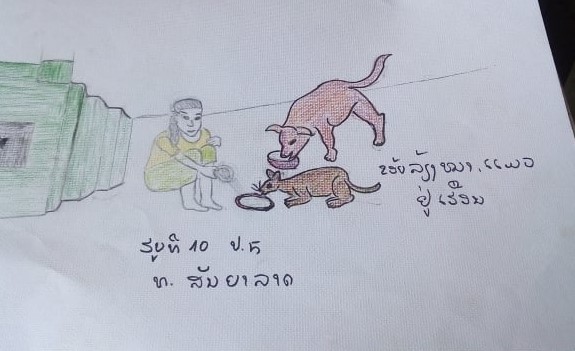 ຂອ້ຍລ້ຽງໝາ, ແມວ
ຢູ່ເຮືອນ
ຮູບທີ 10 ປ.ຕ
ທ. ສັນຍາລາດ